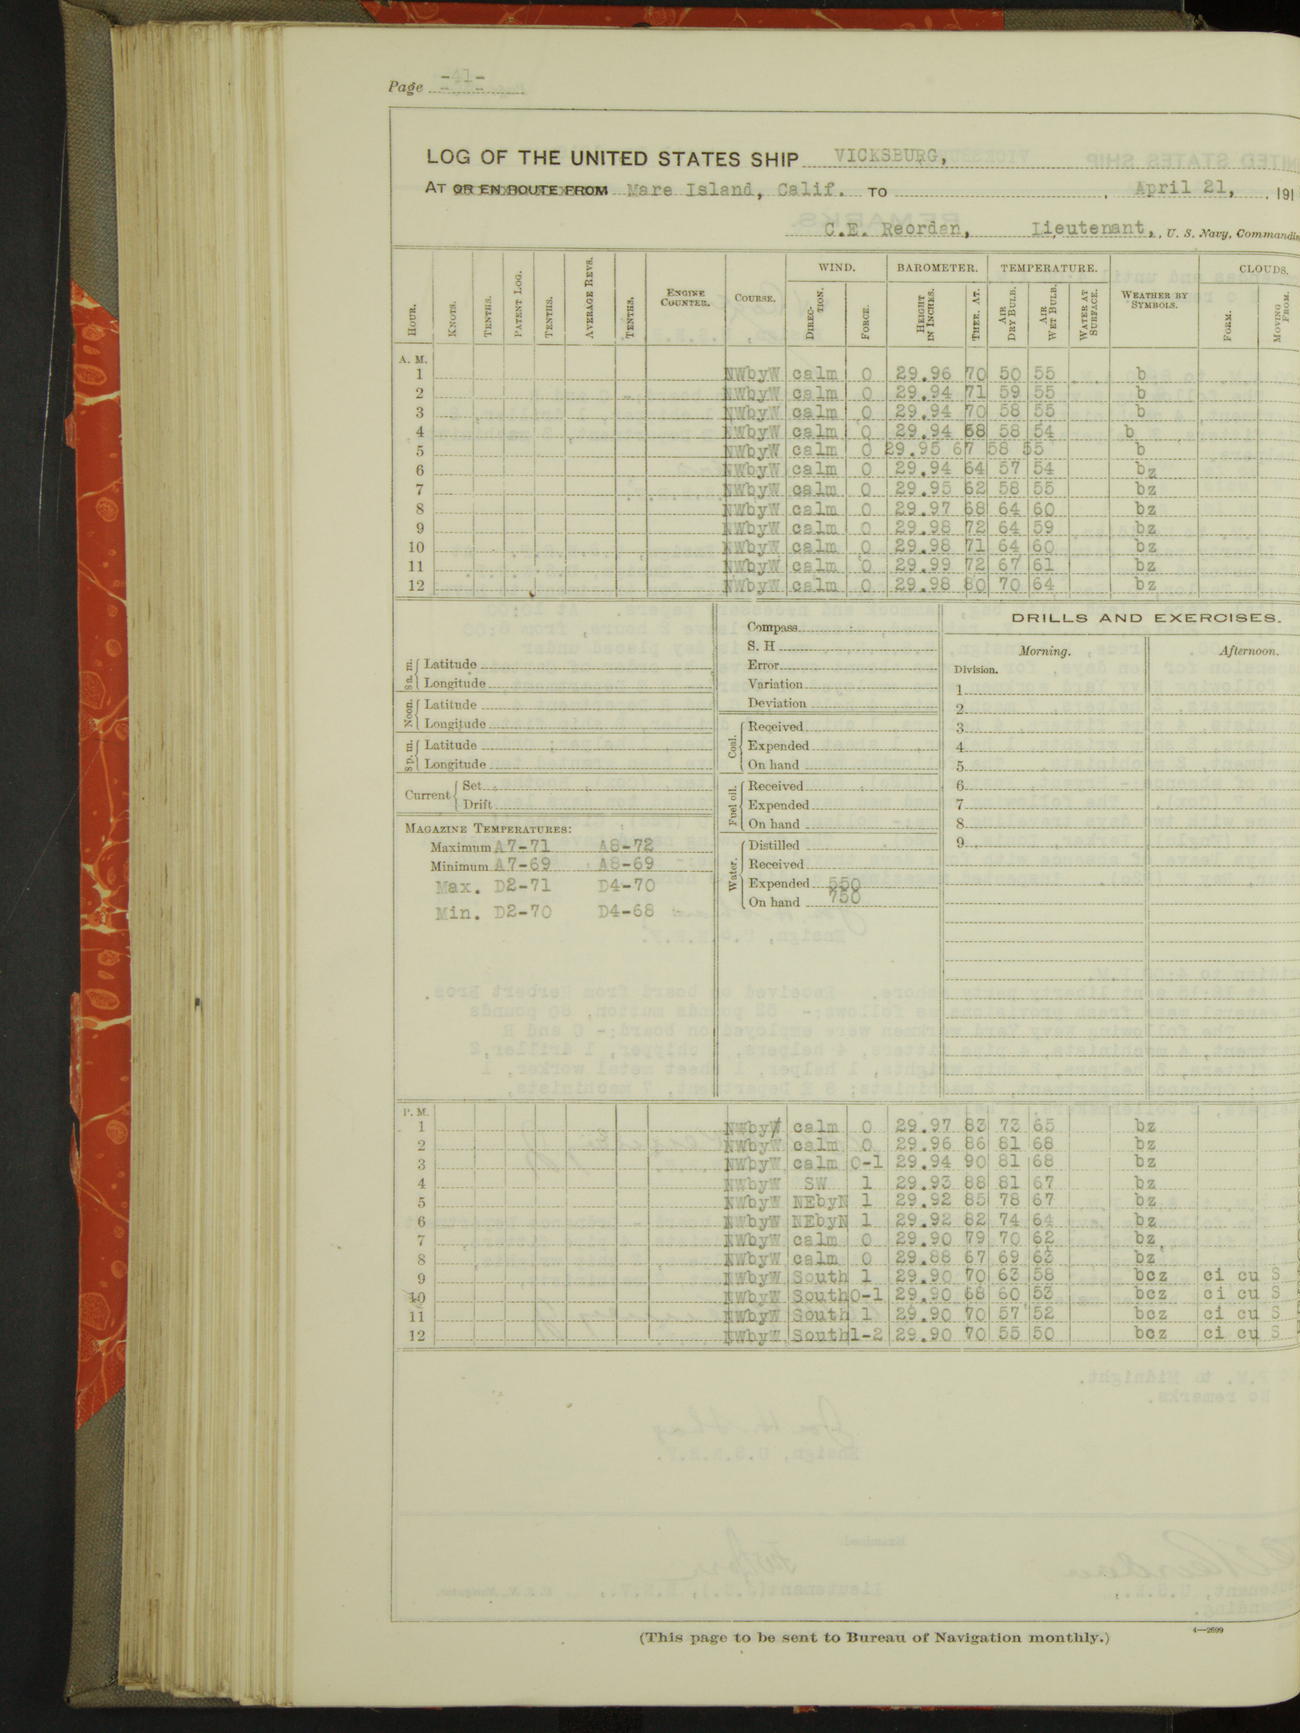 Page -41-
LOG OF THE UNITED STATES SHIP VICKSBURG,
AT OR EN ROUTE FROM Mare Island, Calif. TO , April 21, , 191
C.E. Reordan, Lieutenant, , U. S. Navy, Commandin
WIND. BAROMETER. TEMPERATURE. CLOUDS.
HOUR. KNOTS. TENTHS. PATENT LOG. TENTHS. AVERAGE REVS. TENTHS. ENGINE COUNTER. COURSE. DIREC-TION. FORCE. HEIGHT IN INCHES. THER. AT. AIR DRY BULB. AIR WET BULB. WATER AT SURFACE. WEATHER BY SYMBOLS. FORM. MOVING FROM.
A. M.
1 NWbyW calm 0 29.96 70 50 55 b
2 NWbyW calm 0 29.94 71 59 55 b
3 NWbyW calm 0 29.94 70 58 55 b
4 NWbyW calm 0 29.94 68 58 54 b
5 NWbyW calm 0 29.95 67 58 55 b
6 NWbyW calm 0 29.94 64 57 54 bz
7 NWbyW calm 0 29.95 62 58 55 bz
8 NWbyW calm 0 29.97 68 64 60 bz
9 NWbyW calm 0 29.98 72 64 59 bz
10 NWbyW calm 0 29.98 71 64 60 bz
11 NWbyW calm 0 29.99 72 67 61 bz
12 NWbyW calm 0 29.98 80 70 64 bz
8 a. m. Latitude
Longitude
Noon. Latitude
Longitude
8 p. m. Latitude
Longitude
Current Set
Drift
MAGAZINE TEMPERATURES:
Maximum A7-71 A8-72
Minimum A7-69 A8-69
Max. D2-71 D4-70
Min. D2-70 D4-68
Compass
S. H
Error
Variation
Deviation
Coal. Received
Expended
On hand
Fuel oil. Received
Expended
On hand
Water. Distilled
Received
Expended 550
On hand 750
DRILLS AND EXERCISES.
Morning. Afternoon.
Division.
1
2
3
4
5
6
7
8
9
P. M.
1 NWbyW calm 0 29.97 83 73 65 bz
2 NWbyW calm 0 29.96 86 81 68 bz
3 NWbyW calm 0-1 29.94 90 81 68 bz
4 NWbyW SW 1 29.93 88 81 67 bz
5 NWbyW NEbyN 1 29.92 85 78 67 bz
6 NWbyW NEbyN 1 29.92 82 74 64 bz
7 NWbyW calm 0 29.90 79 70 62 bz
8 NWbyW calm 0 29.88 67 69 63 bz
9 NWbyW South 1 29.90 70 63 58 bcz ci cu S
10 NWbyW South 0-1 29.90 68 60 53 bcz ci cu S
11 NWbyW South 1 29.90 70 57 52 bcz ci cu S
12 NWbyW South 1-2 29.90 70 55 50 bcz ci cu S
(This page to be sent to Bureau of Navigation monthly.)
4—2699